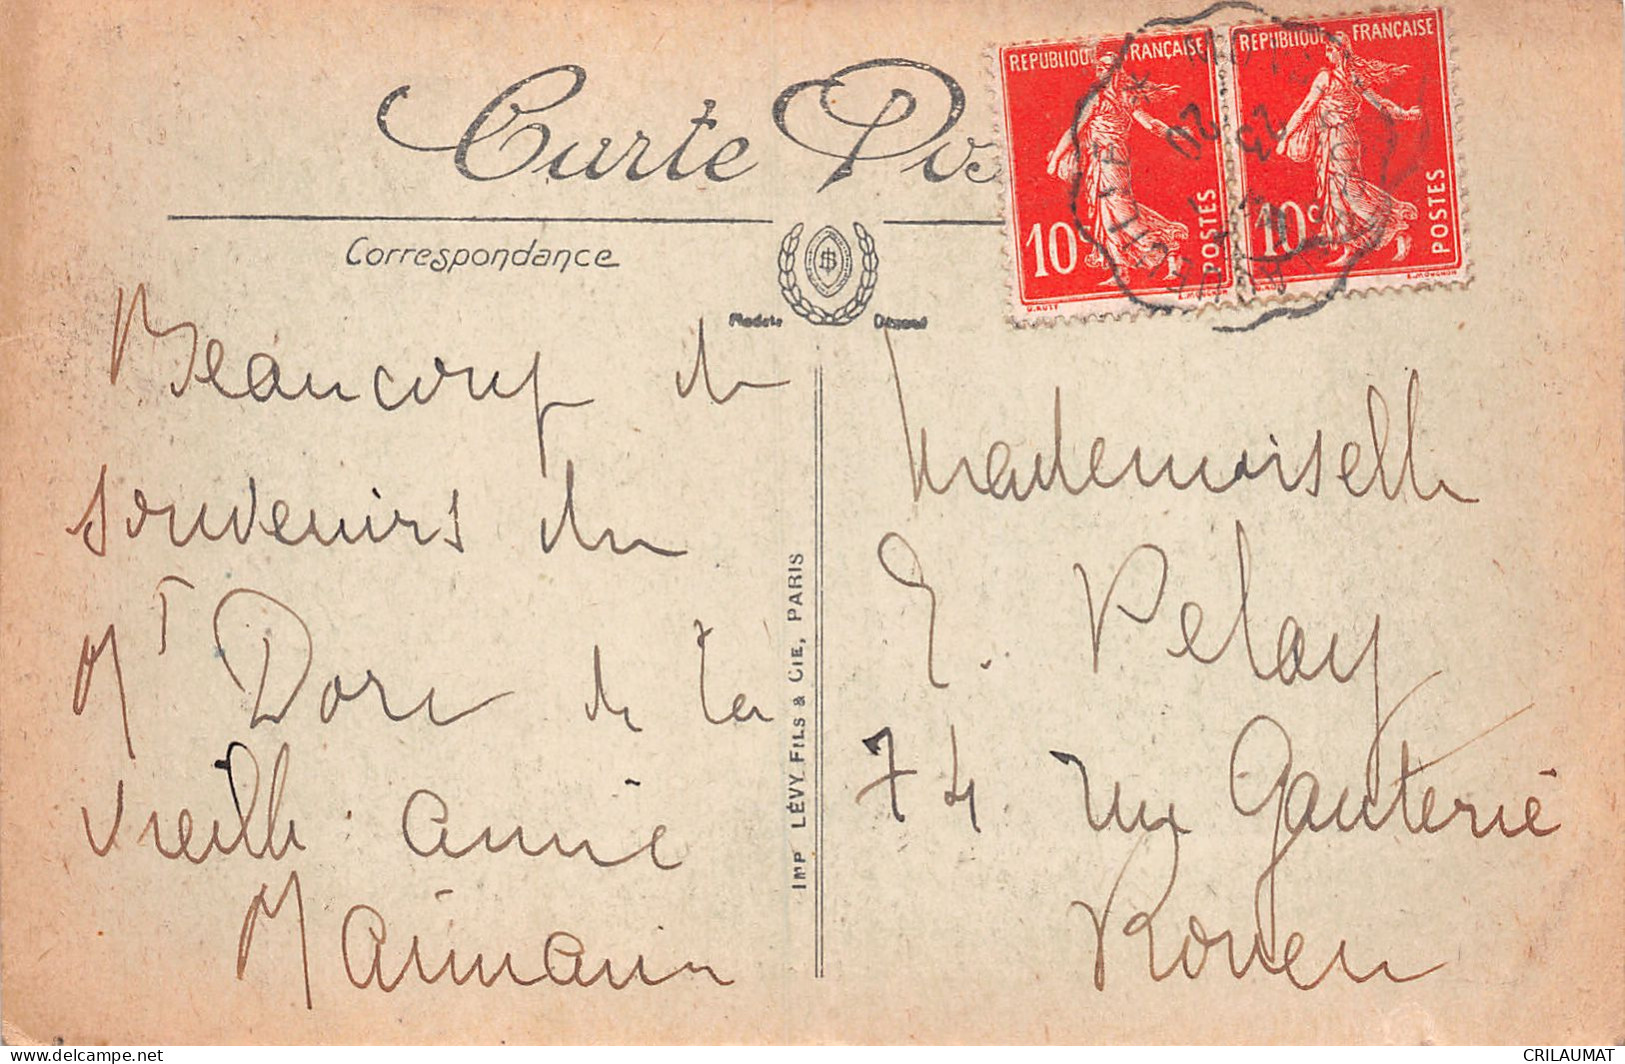 Carte Pos
Correspondance
Modèle Déposé
REPUBLIQUE FRANÇAISE
10
POSTES
REPUBLIQUE FRANÇAISE
10c
POSTES
20
23
Beaucoup de
souvenirs du
Mt Dore de ta
vieille amie
Maman
IMP LÉVY FILS & CIE, PARIS
Mademoiselle
E. Pelay
74 rue Ganterie
Rouen
delcampe.net
CRILAUMAT